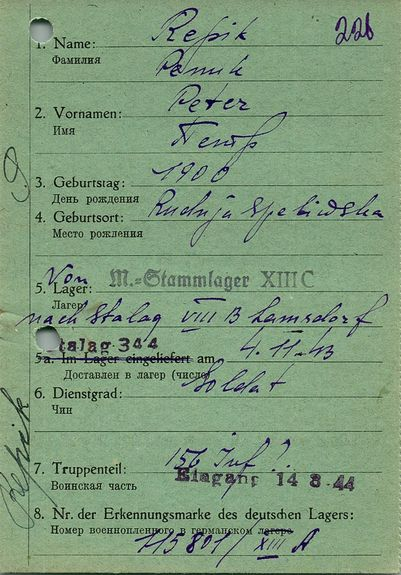 226
1. Name: Repik
Фамилия Репик
2. Vornamen: Peter
Имя Петр
3. Geburtstag: 1900
День рождения
4. Geburtsort: Rudnja
Место рождения
Von M.-Stammlager XIII C
5. Lager:
Лагерь
nach Stalag VIII B Lamsdorf
Stalag 344
5a. Im Lager eingeliefert am 4.11.43
Доставлен в лагерь (число)
6. Dienstgrad: Soldat
Чин
7. Truppenteil: 156 Inf ?.
Воинская часть Eingang 14 8.44
8. Nr. der Erkennungsmarke des deutschen Lagers:
Номер военнопленного в германском лагере
115801/ XIII A
Repik